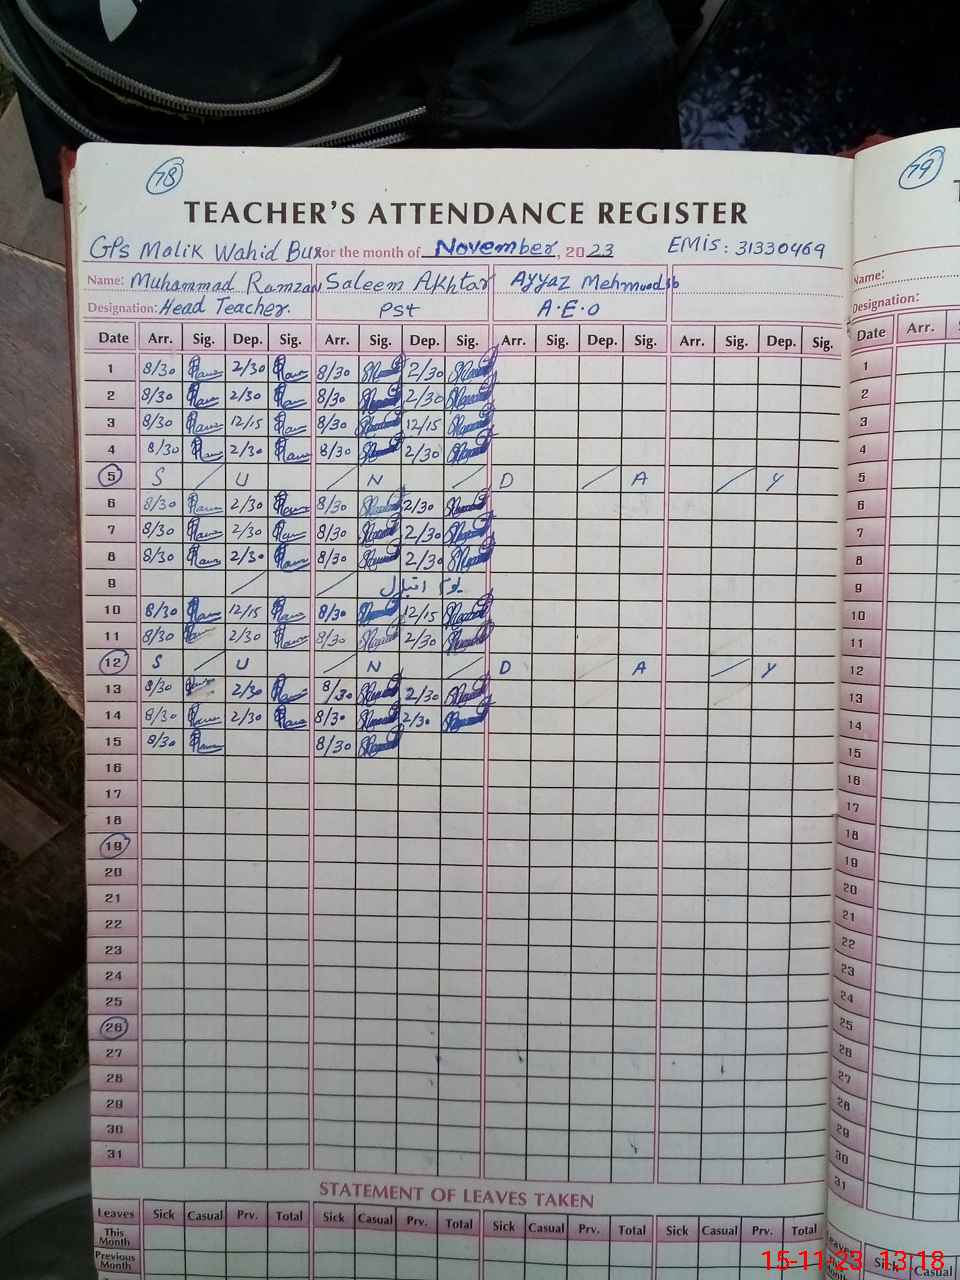 78
79
TEACHER'S ATTENDANCE REGISTER
GPS Malik Wahid Bux for the month of November, 2023 EMIS: 31330469
Name: Muhammad Ramzan Saleem Akhtar Ayyaz Mehmood sb
Designation: Head Teacher. PST A.E.O
Date Arr. Sig. Dep. Sig. Arr. Sig. Dep. Sig. Arr. Sig. Dep. Sig. Arr. Sig. Dep. Sig.
1 8/30 2/30 8/30 2/30
2 8/30 2/30 8/30 2/30
3 8/30 12/15 8/30 12/15
4 8/30 2/30 8/30 2/30
5 S / U / N / D / A / Y
6 8/30 2/30 8/30 2/30
7 8/30 2/30 8/30 2/30
8 8/30 2/30 8/30 2/30
9 / / یوم اقبال
10 8/30 12/15 8/30 12/15
11 8/30 2/30 8/30 2/30
12 S / U / N / D / A / Y
13 8/30 2/30 8/30 2/30
14 8/30 2/30 8/30 2/30
15 8/30 8/30
16
17
18
19
20
21
22
23
24
25
26
27
28
29
30
31
STATEMENT OF LEAVES TAKEN
Leaves Sick Casual Prv. Total Sick Casual Prv. Total Sick Casual Prv. Total Sick Casual Prv. Total
This Month
Previous Month
Name:
Designation:
Date Arr.
1
2
3
4
5
6
7
8
9
10
11
12
13
14
15
16
17
18
19
20
21
22
23
24
25
26
27
28
29
30
31
Sick Casual
15-11-23 13:18